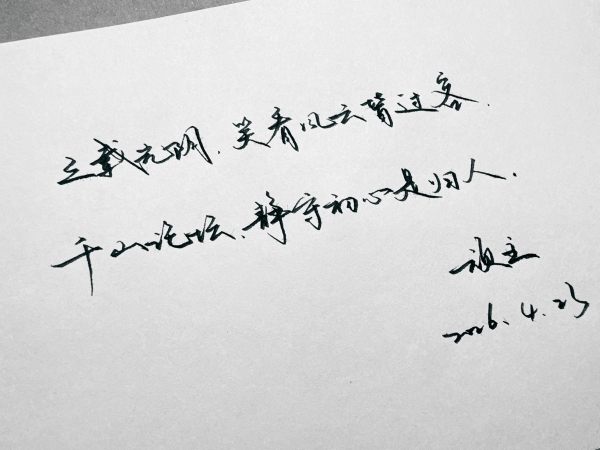 三载光阴，笑看风云皆过客。
千山论坛，静守初心是归人。
版主
2026.4.23